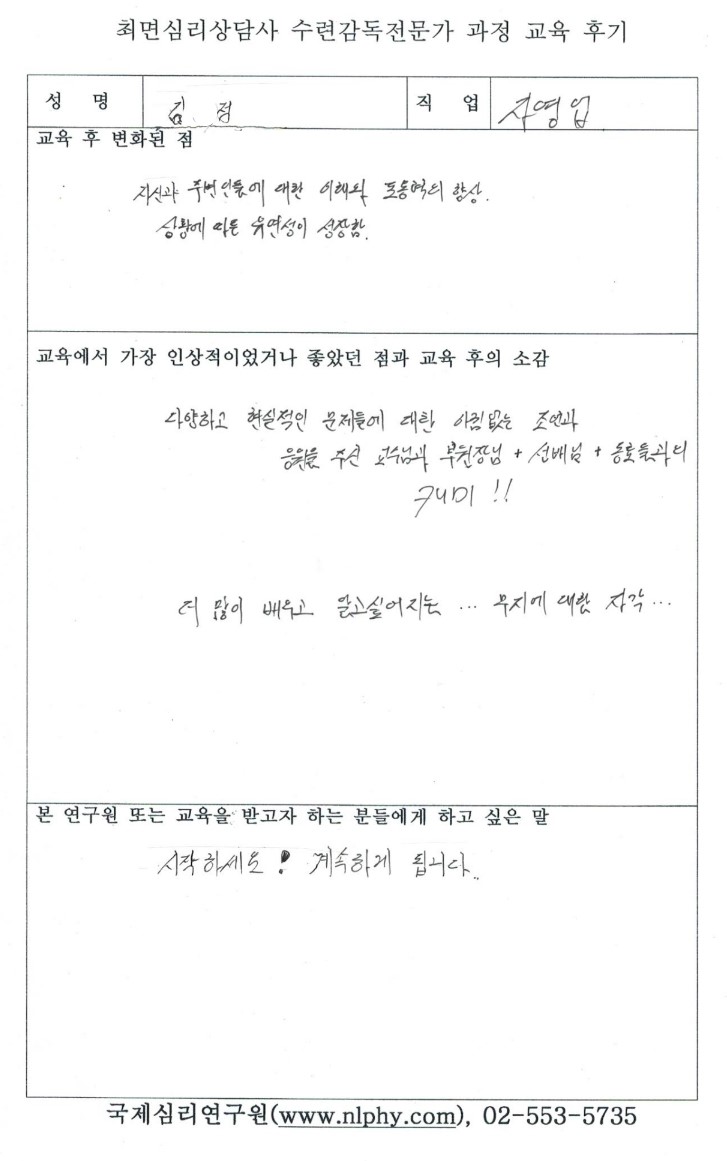 최면심리상담사 수련감독전문가 과정 교육 후기
성 명 김 점 직 업 자영업
교육 후 변화된 점
자신과 주변인들에 대한 이해와 포용력의 향상.
상황에 따른 유연성이 성장함.
교육에서 가장 인상적이었거나 좋았던 점과 교육 후의 소감
다양하고 현실적인 문제들에 대한 아낌없는 조언과
응원을 주신 교수님과 부원장님 + 선배님 + 동료들과의
케미 !!
더 많이 배우고 알고싶어지는 … 무지에 대한 자각 …
본 연구원 또는 교육을 받고자 하는 분들에게 하고 싶은 말
시작하세요! 계속하게 됩니다..
국제심리연구원(www.nlphy.com), 02-553-5735